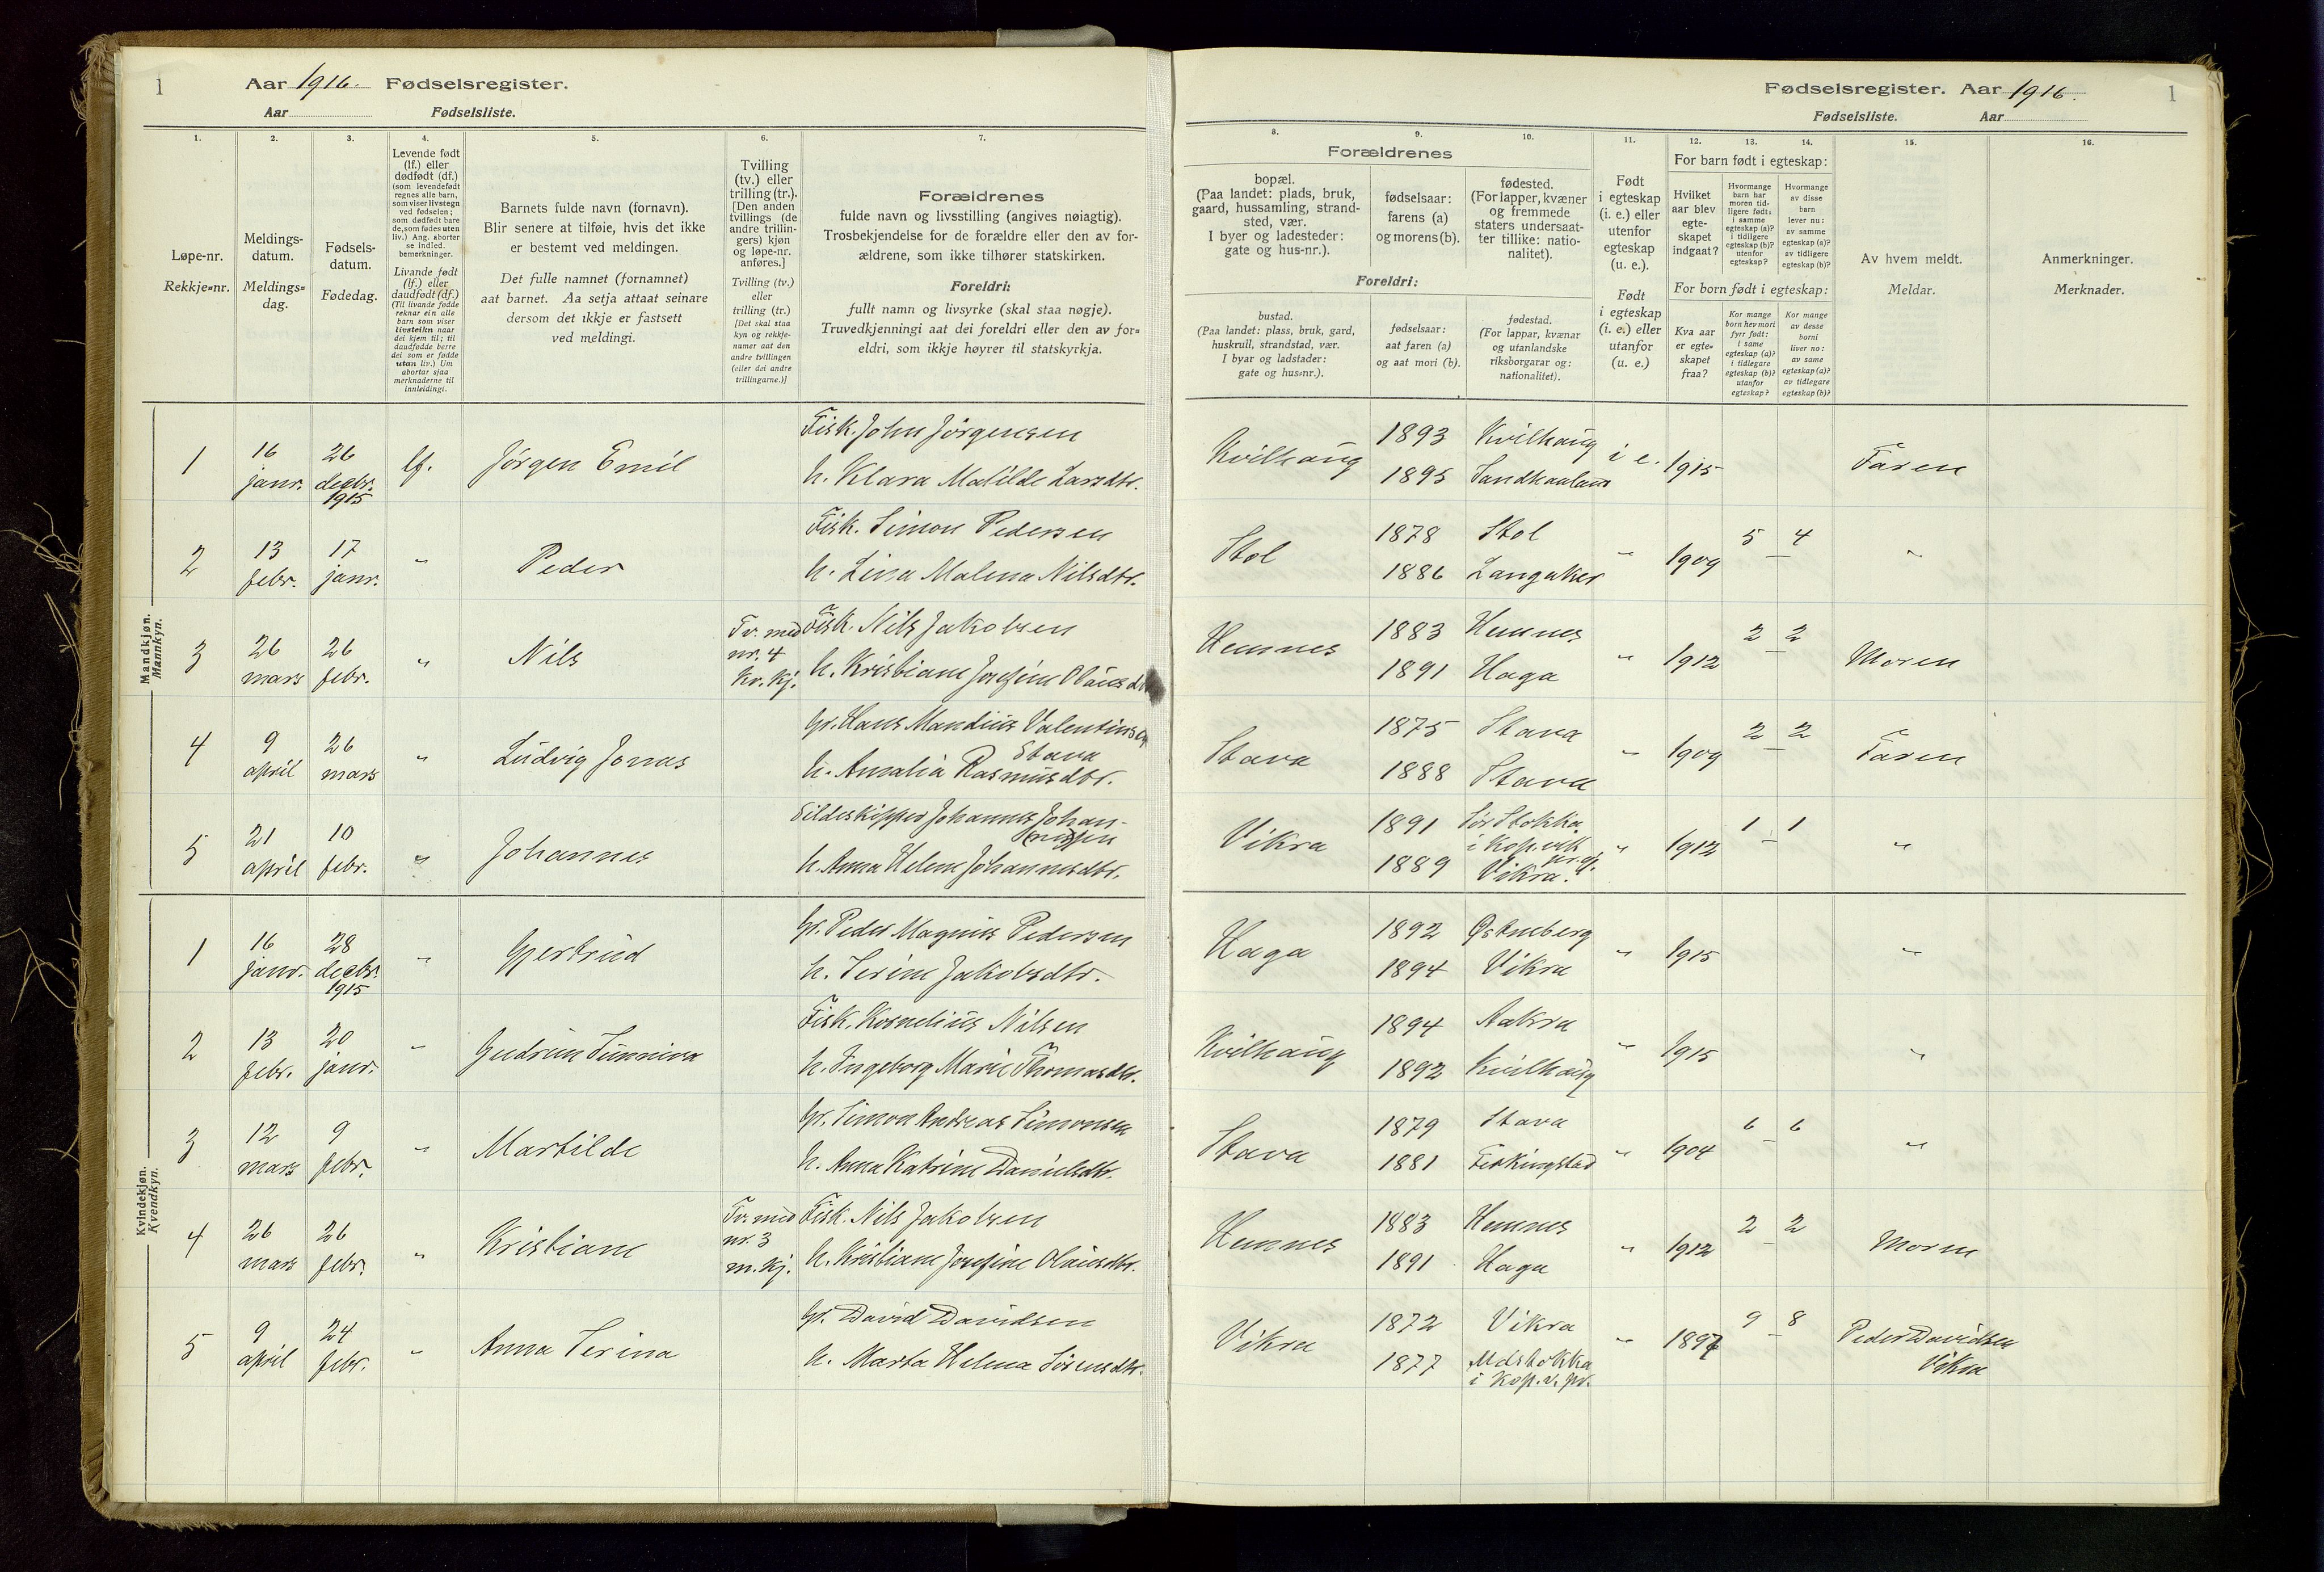 1
Aar 1916. Fødselsregister.
Aar Fødselsliste.
1. 2. 3. 4. 5. 6. 7.
Løpe-nr.
Rekkje=nr.
Meldings-
datum.
Meldings=
dag.
Fødsels-
datum.
Fødedag.
Levende født
(lf.) eller
dødfødt (df.)
(som levendefødt
regnes alle barn,
som viser livstegn
ved fødselen;
som dødfødt bare
de, som fødes uten
liv.) Ang. aborter
se indled.
bemerkninger.
Livande født
(lf.) eller
daudfødt (df.)
(Til livande fødde
reknar ein alle
barn som viser
livsteikn naar
dei kjem til; til
daudfødde berre
dei som er fødde
utan liv.) Um
abortar sjaa
merknaderne til
innleidingi.
Barnets fulde navn (fornavn).
Blir senere at tilføie, hvis det ikke
er bestemt ved meldingen.
Det fulle namnet (fornamnet)
aat barnet. Aa setja attaat seinare
dersom det ikkje er fastsett
ved meldingi.
Tvilling
(tv.) eller
trilling (tr.).
[Den anden
tvillings (de
andre trillin-
gers) kjøn
og løpe-nr.
anføres.]
Tvilling (tv.)
eller
trilling (tr.)
[Det skal staa
kyn og rekkje-
numer aat den
andre tvillingen
(eller dei andre
trillingarne.)]
Forældrenes
fulde navn og livsstilling (angives nøiagtig).
Trosbekjendelse for de forældre eller den av for-
ældrene, som ikke tilhører statskirken.
Foreldri:
fullt namn og livsyrke (skal staa nøgje).
Truvedkjenningi aat dei foreldri eller den av for=
eldri, som ikkje høyrer til statskyrkja.
Mandkjøn.
Mannkyn.
1 16 janr. 26 decbr. 1915 lf. Jørgen Emil
Fisk. John Jørgensen
h. Klara Matilde Larsdtr.
2 13 febr. 17 janr. " Peder
Fisk. Simon Pedersen
h. Lina Malena Nilsdtr.
3 26 mars 26 febr. " Nils
Tv. med
nr. 4
kv. kj.
Fisk. Nils Jakobsen
h. Kristiane Josefine Olausdtr
4 9 april 26 mars " Ludvig Jonas
Gr. Hans Mandius Valentinsen
Stava
h. Amalia Rasmusdtr.
5 21 april 10 febr. " Johannes
Sildeskipper Johannes Johan-
nessen
h. Anna Helene Johannesdtr.
Kvindekjøn.
Kvendkyn.
1 16 janr. 28 decbr. 1915 " Gjertrud
Gr. Peder Magnus Pedersen
h. Serine Jakobsdtr.
2 13 febr. 20 janr. " Gudrun Sunniva
Fisk. Kornelius Nilsen
h. Ingeborg Marie Thomasdtr.
3 12 mars 9 febr. " Martilde
Gr. Simon Andreas Simonsen
h. Anna Katrine Danielsdtr.
4 26 mars 26 febr. " Kristiane
Tv. med
nr. 3
m. kj.
Fisk. Nils Jakobsen
h. Kristiane Josefine Olausdtr.
5 9 april 24 febr. " Anna Serina
Gr. David Davidsen
h. Marta Helena Sørensdtr.
Fødselsregister. Aar 1916. 1
Fødselsliste. Aar
8. 9. 10. 11. 12. 13. 14. 15. 16.
Forældrenes
bopæl.
(Paa landet: plads, bruk,
gaard, hussamling, strand-
sted, vær.
I byer og ladesteder:
gate og hus-nr.).
fødselsaar:
farens (a)
og morens (b).
fødested.
(For lapper, kvæner
og fremmede
staters undersaat-
ter tillike: natio-
nalitet).
Foreldri:
bustad.
(Paa landet: plass, bruk, gard,
huskrull, strandstad, vær.
I byar og ladstader:
gate og hus=nr.).
fødselsaar:
aat faren (a)
og aat mori (b).
fødestad.
(For lappar, kvænar
og utanlandske
riksborgarar og:
nationalitet).
Født
i egteskap
(i. e.) eller
utenfor
egteskap
(u. e.).
Født
i egteskap
(i. e.) eller
utanfor
(u. e.)
For barn født i egteskap:
Hvilket
aar blev
egte-
skapet
indgaat?
Hvormange
barn har
moren tid-
ligere født:
i samme
egteskap (a)?
i tidligere
egteskap (b)?
utenfor
egteskap?
Hvormange
av disse
barn
lever nu:
av samme
egteskap (a)?
av tidligere
egteskap (b)?
For born født i egteskap:
Kva aar
er egte=
skapet
fraa?
Kor mange
born hev mori
fyrr født:
i same
egteskap (a)?
i tidlegare
egteskap (b)?
utanfor
egteskap?
Kor mange
av desse
borni
liver no:
av same
egteskap (a)?
av tidlegare
egteskap (b)?
Av hvem meldt.
Meldar.
Anmerkninger.
Merknader.
Kvilhaug 1893 Kvilhaug i e. 1915 Faren
1895 Sandhaaland
Stol 1878 Stol " 1909 5 – 4 "
1886 Langaker
Hemnes 1883 Hemnes " 1912 2 – 2 Moren
1891 Haga
Stava 1875 Stava " 1909 2 – 2 Faren
1888 Stava
Vikra 1891 Sør Stokka " 1912 1 – 1 "
i Kopevik
pr.gj.
1889 Vikra.
Haga 1892 Østneberg " 1915 "
1894 Vikra
Kvilhaug 1894 Aakra " 1915 "
1892 Kvilhaug
Stava 1879 Stava " 1904 6 – 6 "
1881 Ferkingstad
Hemnes 1883 Hemnes " 1912 2 – 2 Moren
1891 Haga
Vikra 1872 Vikra " 1897 9 – 8 Peder Davidsen
Vikra
1877 Mdstokka
i Kop.v. pr.